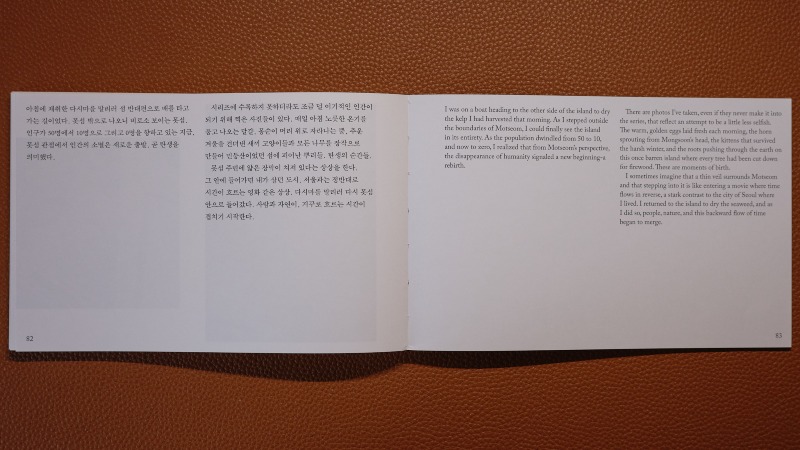 아침에 채취한 다시마를 말리러 섬 반대편으로 배를 타고
가는 길이었다. 못섬 밖으로 나오니 비로소 보이는 못섬.
인구가 50명에서 10명으로 그리고 0명을 향하고 있는 지금,
못섬 관점에서 인간의 소멸은 새로운 출발, 곧 탄생을
의미했다.
82
시리즈에 수록하지 못하더라도 조금 덜 이기적인 인간이
되기 위해 찍은 사진들이 있다. 매일 아침 노릇한 온기를
품고 나오는 달걀, 몽순이 머리 위로 자라나는 뿔, 추운
겨울을 견뎌낸 새끼 고양이들과 모든 나무를 장작으로
만들어 민둥산이었던 섬에 피어난 뿌리들. 탄생의 순간들.
못섬 주변에 얇은 장막이 쳐져 있다는 상상을 한다.
그 안에 들어가면 내가 살던 도시, 서울과는 정반대로
시간이 흐르는 영화 같은 상상. 다시마를 말리러 다시 못섬
안으로 들어갔다. 사람과 자연이, 거꾸로 흐르는 시간이
겹치기 시작한다.
I was on a boat heading to the other side of the island to dry
the kelp I had harvested that morning. As I stepped outside
the boundaries of Motseom, I could finally see the island
in its entirety. As the population dwindled from 50 to 10,
and now to zero, I realized that from Motseom's perspective,
the disappearance of humanity signaled a new beginning–a
rebirth.
There are photos I've taken, even if they never make it into
the series, that reflect an attempt to be a little less selfish.
The warm, golden eggs laid fresh each morning, the horn
sprouting from Mongsoon's head, the kittens that survived
the harsh winter, and the roots pushing through the earth on
this once barren island where every tree had been cut down
for firewood. These are moments of birth.
I sometimes imagine that a thin veil surrounds Motseom
and that stepping into it is like entering a movie where time
flows in reverse, a stark contrast to the city of Seoul where
I lived. I returned to the island to dry the seaweed, and as
I did so, people, nature, and this backward flow of time
began to merge.
83